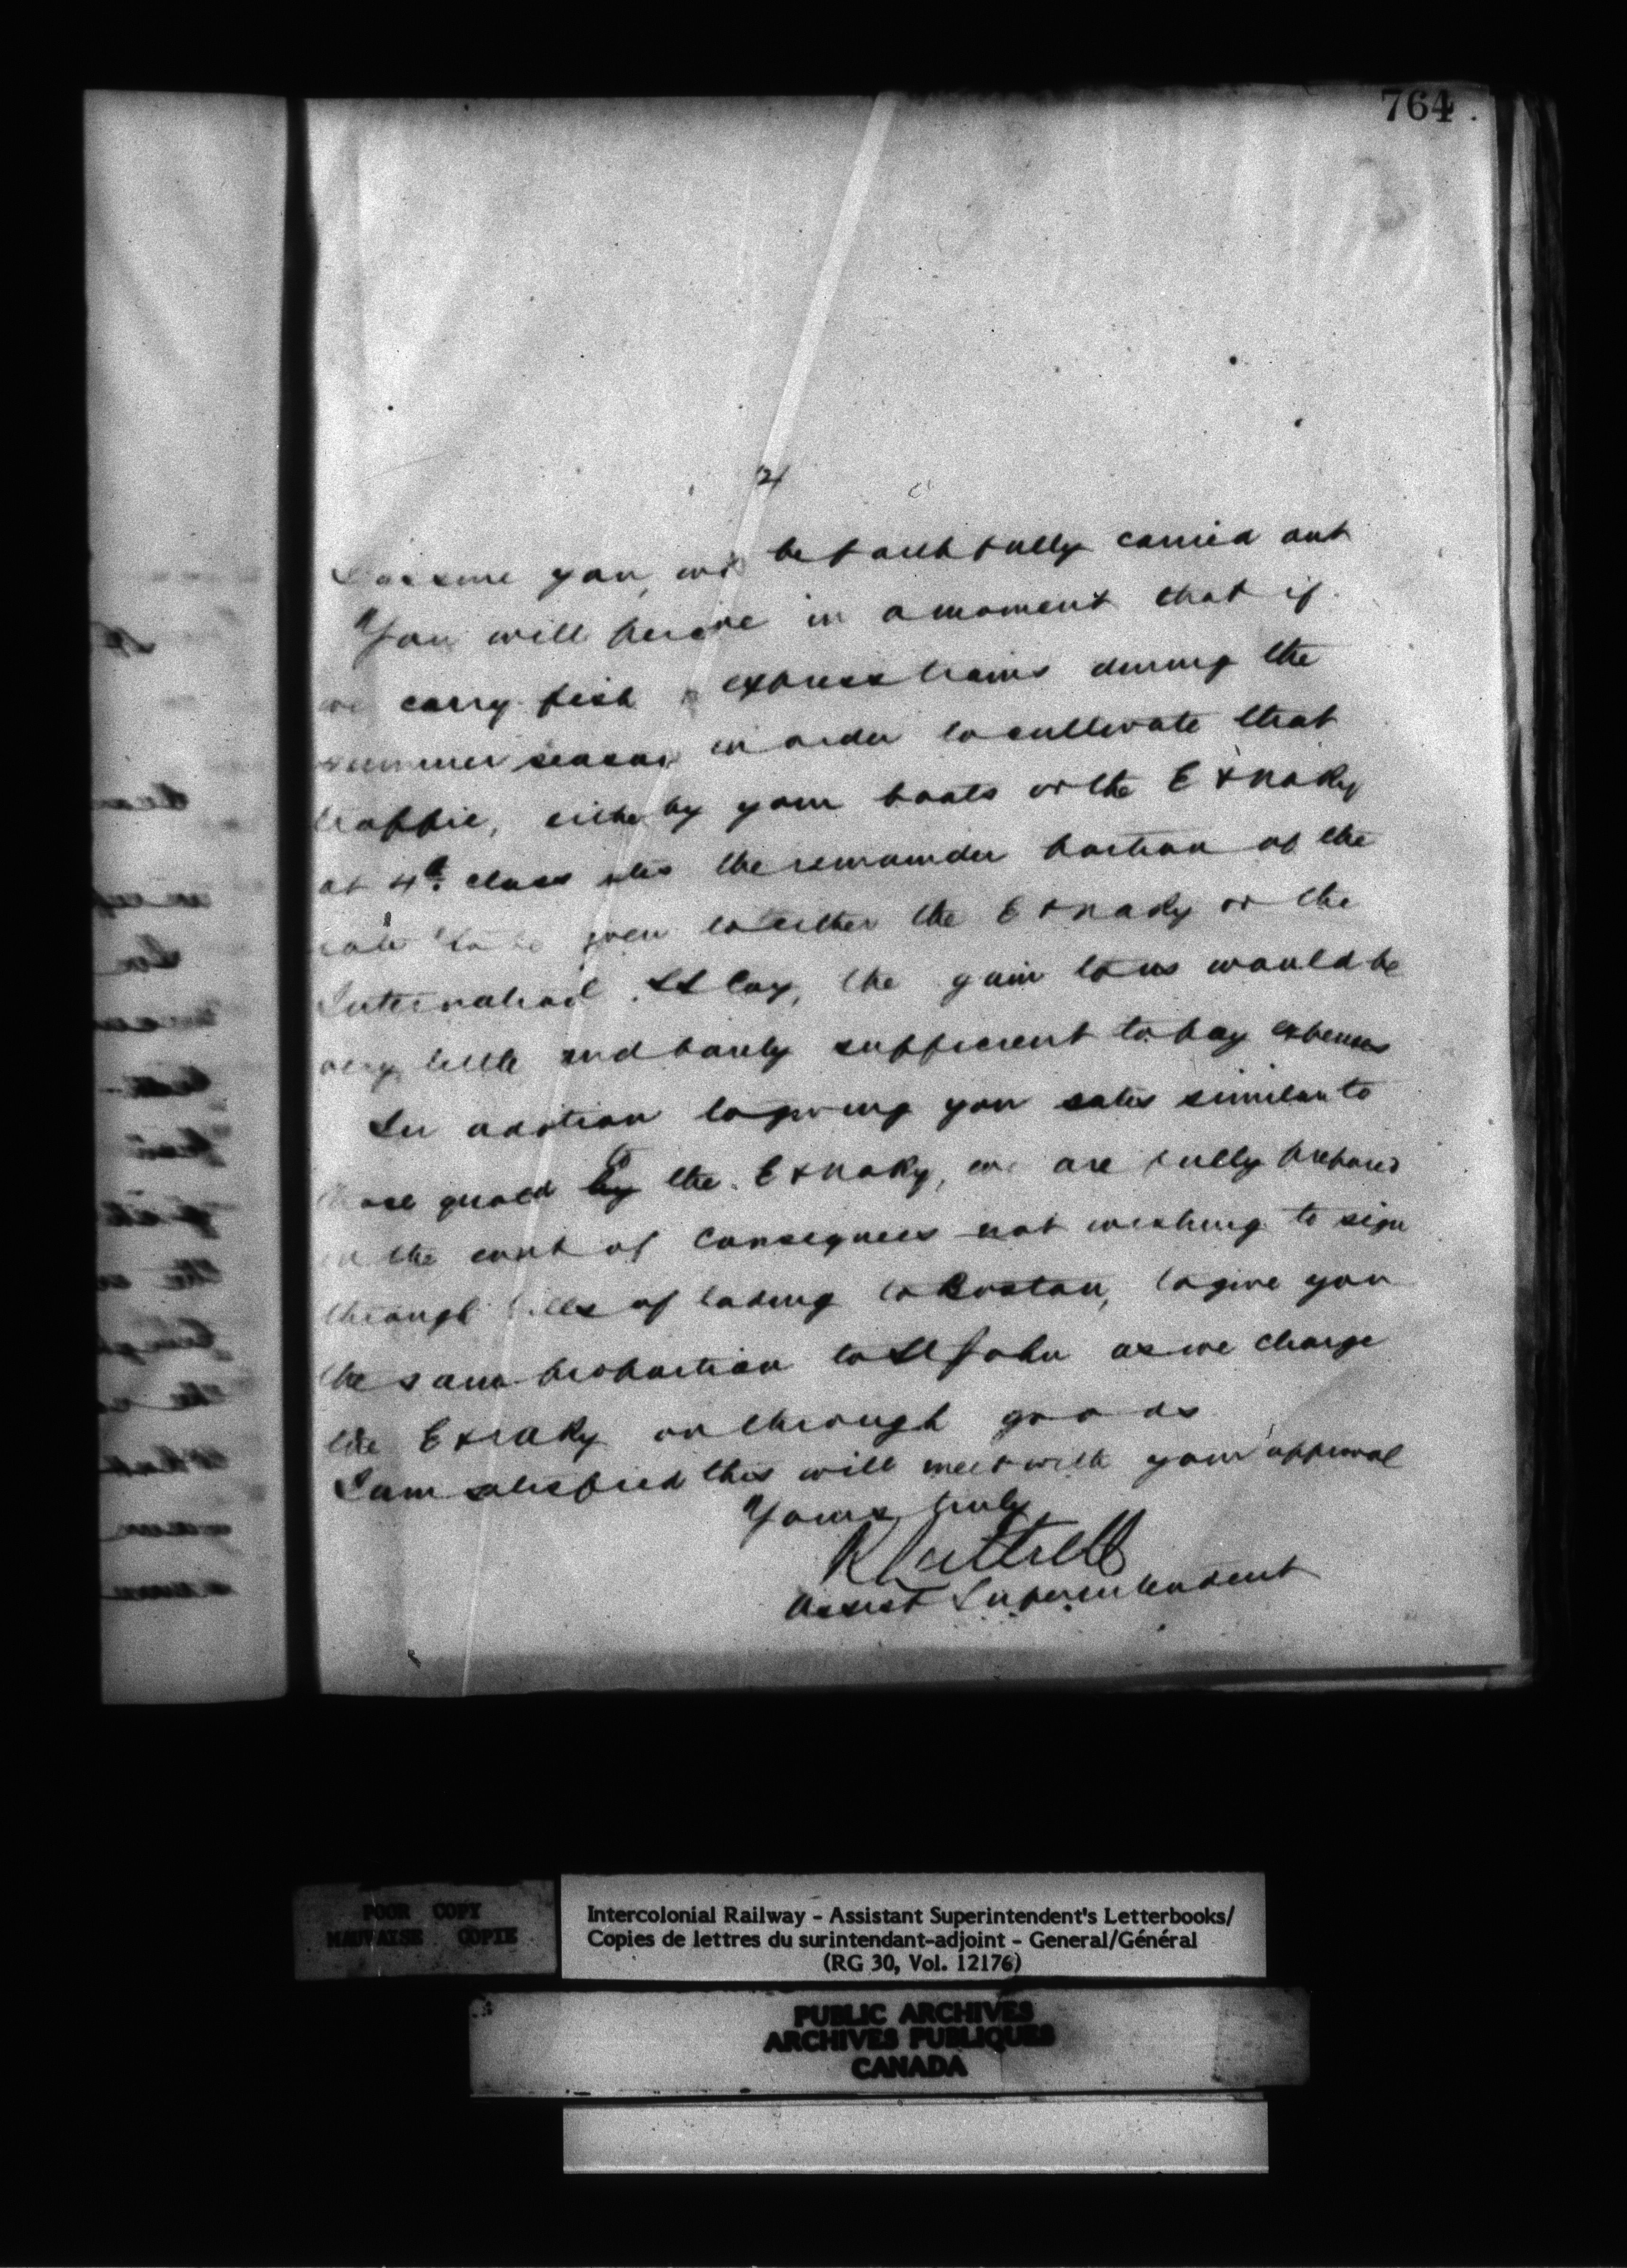 764.
2/
I assure you, will be faithfully carried out
You will perceive in a moment that if
we carry fish express trains during the
summer season in order to cultivate that
traffic, either by your boats or the E & NA Ry
at 4th class rates the remainder portion of the
rate to be given to either the E & NA Ry or the
International SS Coy, the gain to us would be
very little and barely sufficient to pay expenses
In adition to giving you rates similar to
those quoted by to the E & NA Ry, we are fully prepared
in the event of Consignees not wishing to sign
through bills of lading to Boston, to give you
the same proportion to St John as we charge
the E & NA Ry on through goods
I am satisfied this will meet with your approval
Yours truly
R Luttrell
Assist Superintendent
POOR COPY
MAUVAISE COPIE
Intercolonial Railway - Assistant Superintendent's Letterbooks/
Copies de lettres du surintendant-adjoint - General/Général
(RG 30, Vol. 12176)
PUBLIC ARCHIVES
ARCHIVES PUBLIQUES
CANADA